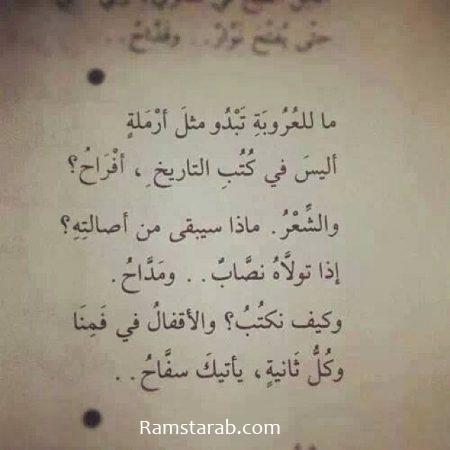 حتّى يُفتّح نوّارٌ.. وقدّاحُ..
ما للعُرُوبَةِ تَبْدُو مثلَ أرْمَلةٍ
أليسَ في كُتُبِ التاريخِ، أفْرَاحُ؟
والشِّعْرُ. ماذا سيبقى من أصالتِهِ؟
إذا تولاَّهُ نصَّابٌ.. ومَدَّاحُ.
وكيف نكتُبُ؟ والأقفالُ في فَمِنَا
وكُلُّ ثَانيةٍ، يأتيكَ سفَّاحُ..
Ramstarab.com